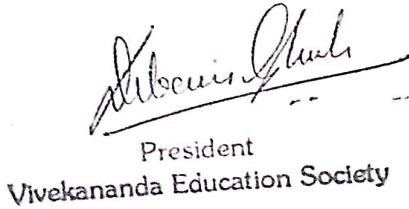 President
Vivekananda Education Society